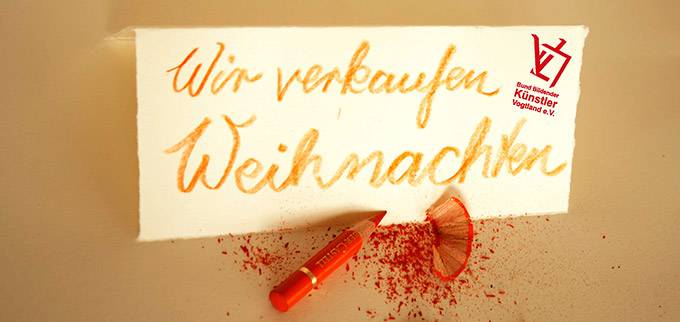 Wir verkaufen
Weihnachten
Bund Bildender
Künstler
Vogtland e.V.